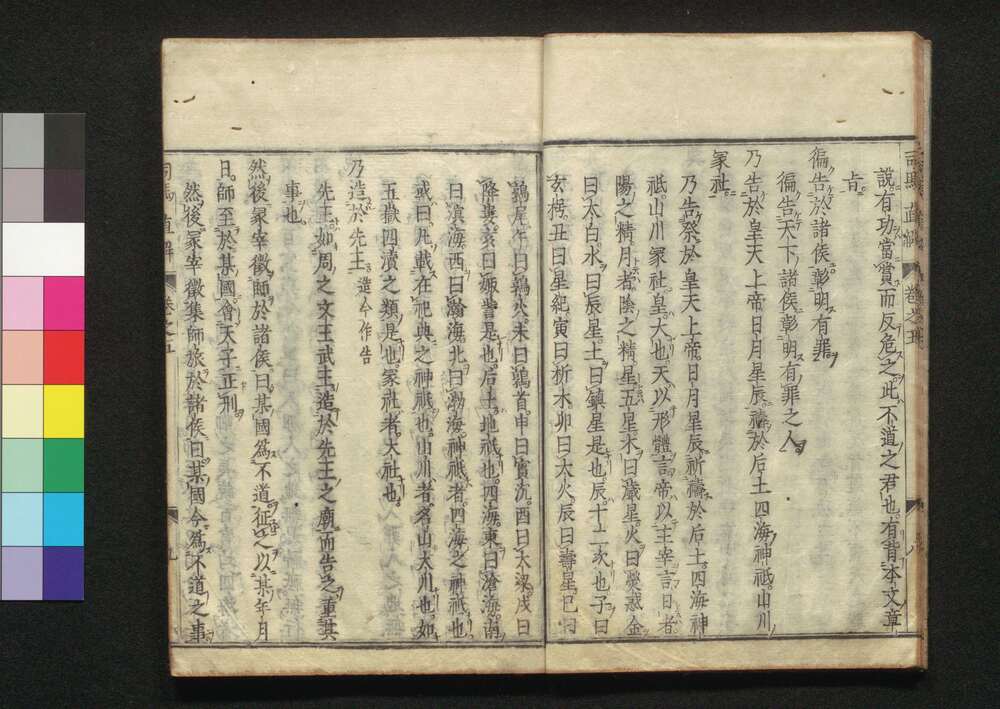 說有功當賞而反危之此不道之君也有背本文章
旨
徧告於諸侯彰明有罪
徧告天下諸侯彰明有罪之人
乃告於皇天上帝日月星辰禱於后土四海神祇山川
冢社
乃告祭於皇天上帝日月星辰祈禱於后土四海神
祇山川冢社皇大也天以形體言帝以主宰言日者
陽之精月者陰之精星五星木曰歲星火曰熒惑金
曰太白水曰辰星土曰鎮星是也辰十二次也子曰
玄枵丑曰星紀寅曰析木卯曰大火辰曰壽星巳曰
鶉尾午曰鶉火未曰鶉首申曰實沉酉曰大梁戌曰
降婁亥曰娵訾是也后土地祇也四海東曰滄海南
曰滇海西曰瀚海北曰渤海神祇者四海之神祇也
或曰凡載在祀典之神祇也山川者名山大川也如
五嶽四瀆之類是也冢社者大社也
乃造於先王 造今作告
先王如周之文王武王造於先王之廟而告之重其
事也
然後冢宰徵師於諸侯曰某國爲不道征之以某年月
日師至於某國會天子正刑
然後冢宰徵集師旅於諸侯曰某國今爲不道之事
司馬直解 卷之五 九